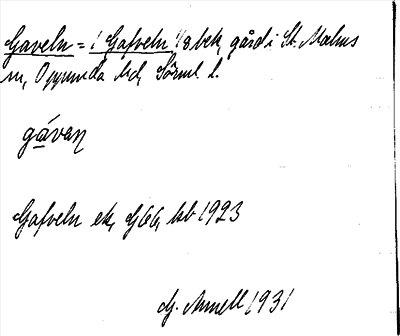 Gaveln = ( Gafveln 1/8 bek, gård i St. Malms
sn, Oppunda hd, Sörml. l.
gávaꞃ
Gafveln ek, dj 66, hb 1923
G. Annell 1931